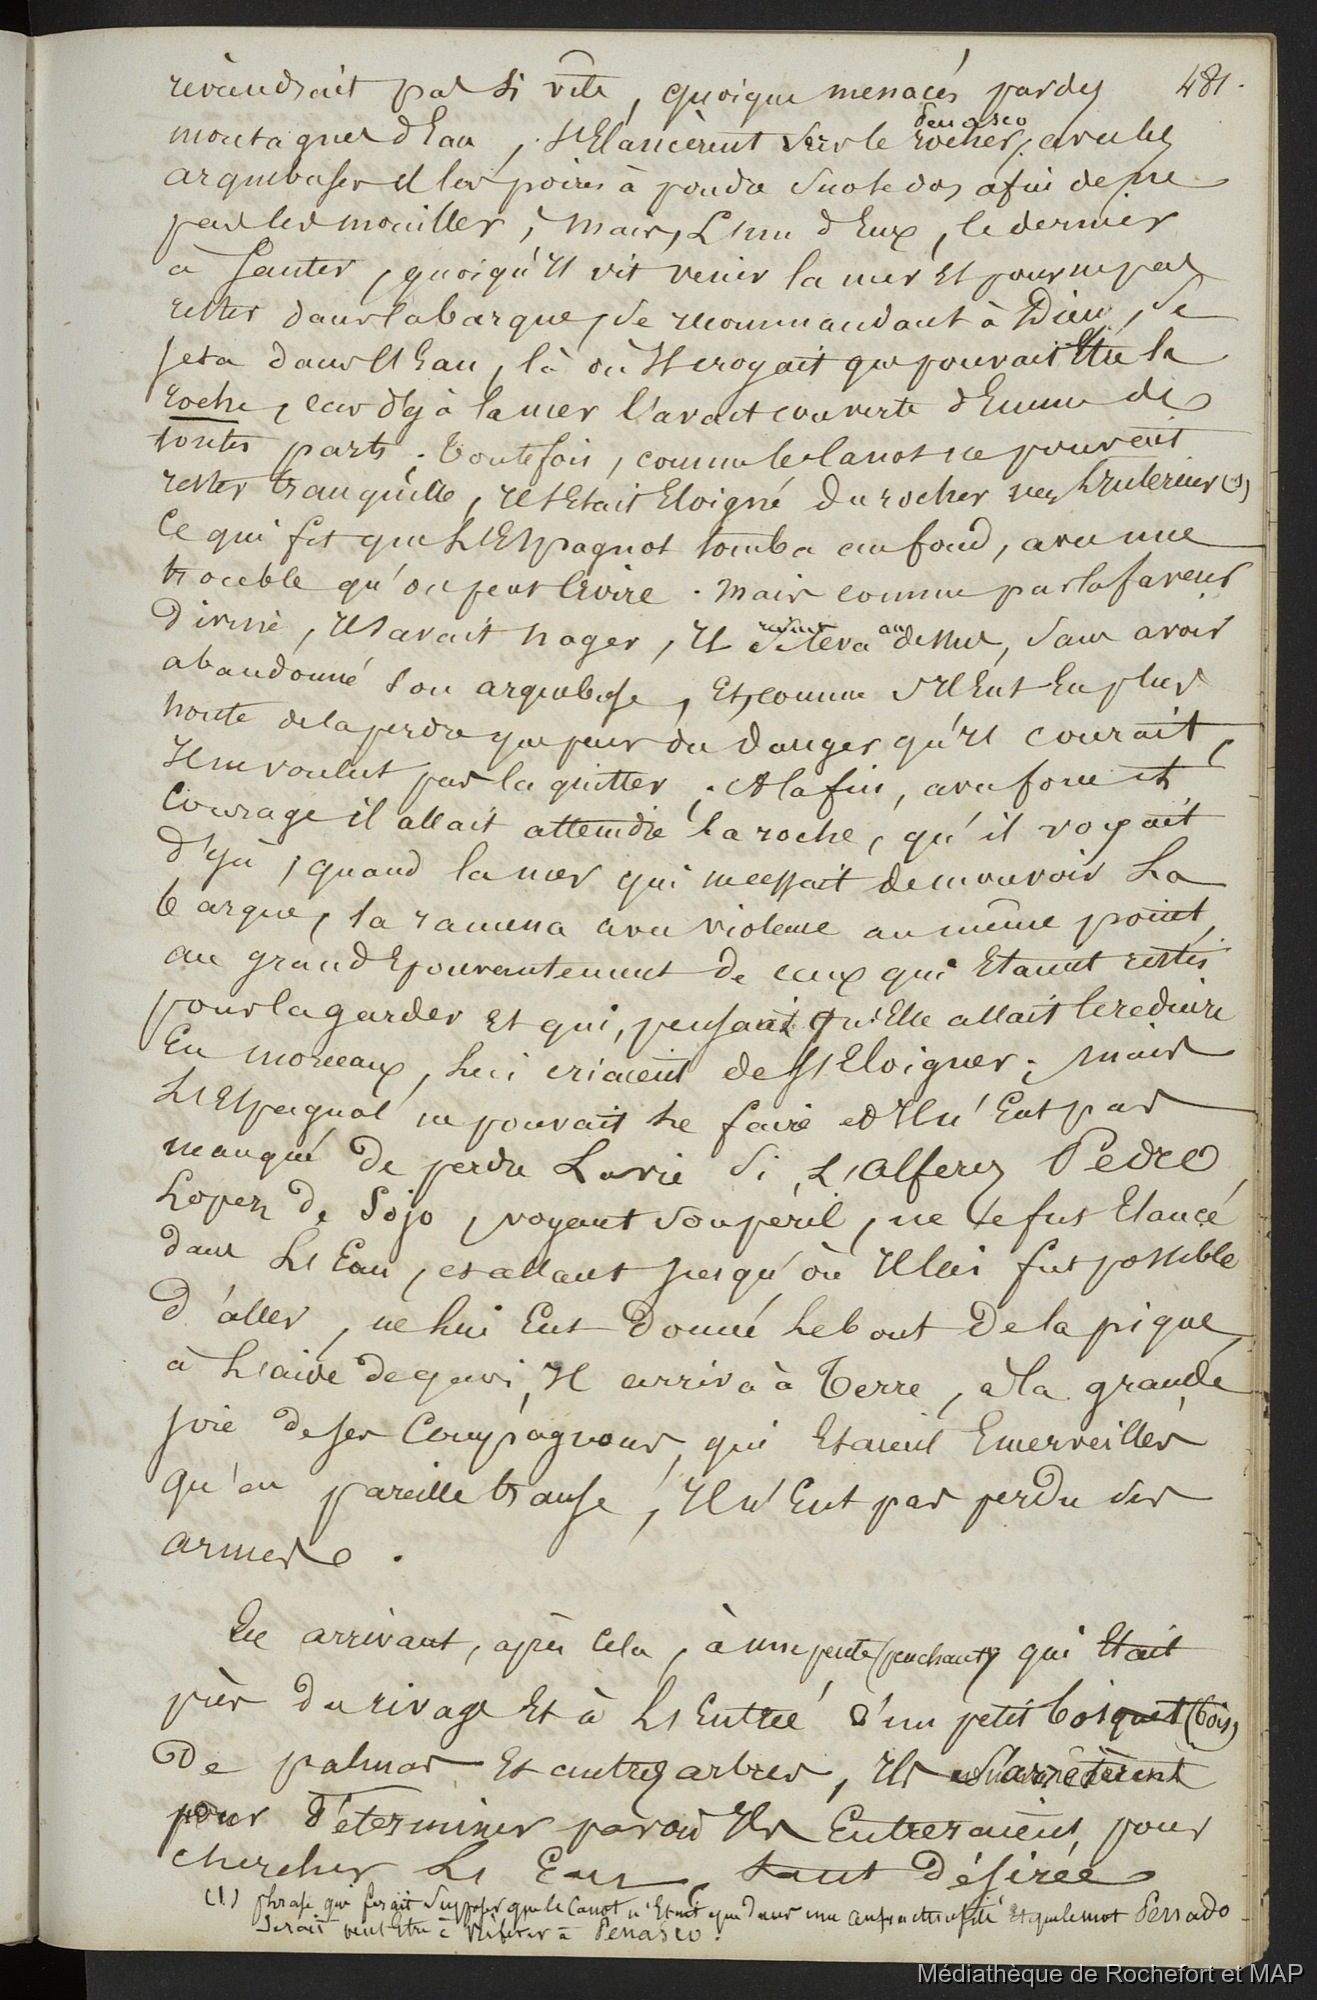 481.
reviendrait pas si vite, quoique menacés par des
montagnes d'Eau, s'Elancèrent sur le rocher, avec les
penasco
arquebuses et les poires à poudre sur le dos afin de ne
pas les mouiller; mais, L'un d'Eux, le dernier
à sauter, quoiqu'Il vit venir la mer et pour ne pas
rester dans la barque, se recommandant à Dieu, se
jeta dans l'Eau, là où Il croyait que pouvait Etre la
roche, car déjà la mer l'avait couverte d'Ecume de
toutes parts. Toutefois, comme le canot ne pouvait
rester tranquille, Il s'Etait Eloigné du rocher vers L'Intérieur (1)
Ce qui fit que L'Espagnol tomba au fond, avec une
trouble qu'on peut croire. Mais comme par la faveur
Divine, Il savait nager, Il revint au dessus, sans avoir
abandonné son arquebuse, Et, comme s'Il Eut Eu plus
honte de la perdre que peur du danger qu'Il courait,
Il ne voulut pas la quitter; A la fin, avec force et
Courage il allait atteindre la roche, qu'il voyait
déjà, quand la mer qui ne cessait de mouvoir La
barque, la ramena avec violence au même point,
au grand Epouvantement de ceux qui Etaient restés
pour la garder Et qui, pensant qu'Elle allait le réduire
En morceaux, lui criaient de s'Eloigner; mais
L'Espagnol ne pouvait le faire et Il n'Eut pas
manqué de perdre La vie si L'alferez Pedro
Lopez de Sojo, voyant son péril, ne se fut Elancé
dans L'Eau, et allant jusqu'où Il lui fut possible
d'aller, ne lui Eut donné le bout de la pique,
à L'aide de quoi, Il arriva à Terre, à la grande
joie de ses Compagnons, qui Etaient Emerveillés
qu'en pareille transe, Il n'Eut pas perdu ses
armes.
En arrivant, après Cela, à une pente (penchant) qui Etait
près du rivage Et à L'Entrée d'un petit bosquet (bois)
De palmas Et autres arbres, Ils s'arrêtèrent
pour déterminer par où Ils Entreraient, pour
chercher L'Eau tant désirée
(1) phrase qui ferait supposer que le Canot n'Etait que dans une anfractuosité Et que le mot Penado
serait peut Etre à référer à Penasco.
Médiathèque de Rochefort et MAP